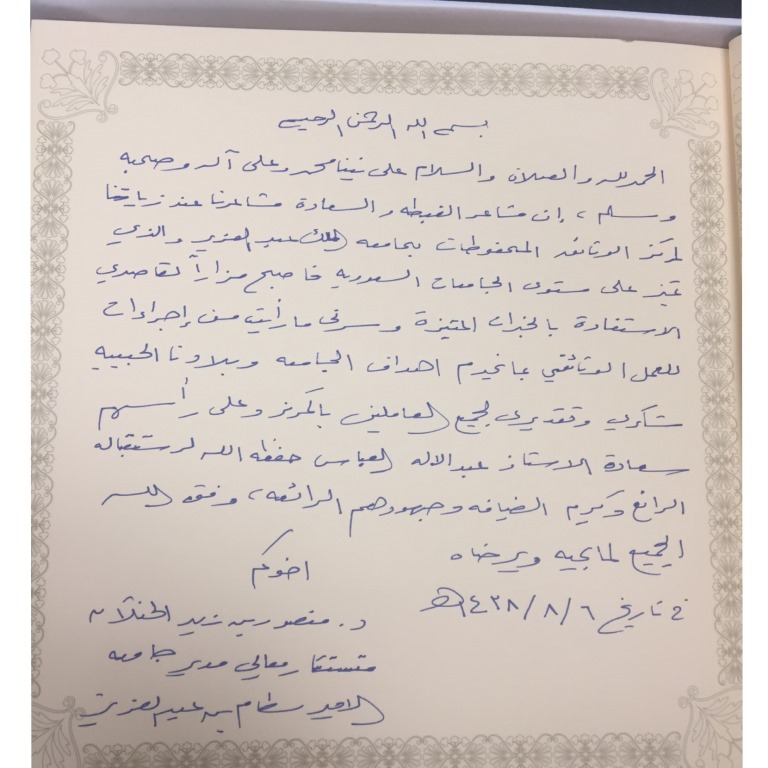 بسم الله الرحمن الرحيم
الحمد لله والصلاة والسلام على نبينا محمد وعلى آله وصحبه
وسلم، إن مشاعر الغبطه والسعادة مشاعرنا عند زيارتنا
لمركز الوثائق المحفوظات بجامعه الملك عبد العزيز والذي
تميز على مستوى الجامعات السعوديه فاصبح مزاراً لقاصدي
الاستفادة بالخبرات المتميزة وسرني ما رأيت من إجراءات
للعمل الوثائقي بما يخدم اهداف الجامعه وبلادنا الحبيبه
شكري وتقديري لجميع العاملين بالمركز وعلى رأسهم
سعادة الاستاذ عبدالاله العباس حفظه الله لاستقباله
الرائع وكريم الضيافه وجهودهم الرائعه، وفق الله
الجميع لما يحبه ويرضاه
اخوكم
في تاريخ ١٤٣٨/٨/٦هـ
د. منصور بن زيد
مستشار معالي مدير جامعه
الامير سطام بن عبدالعزيز